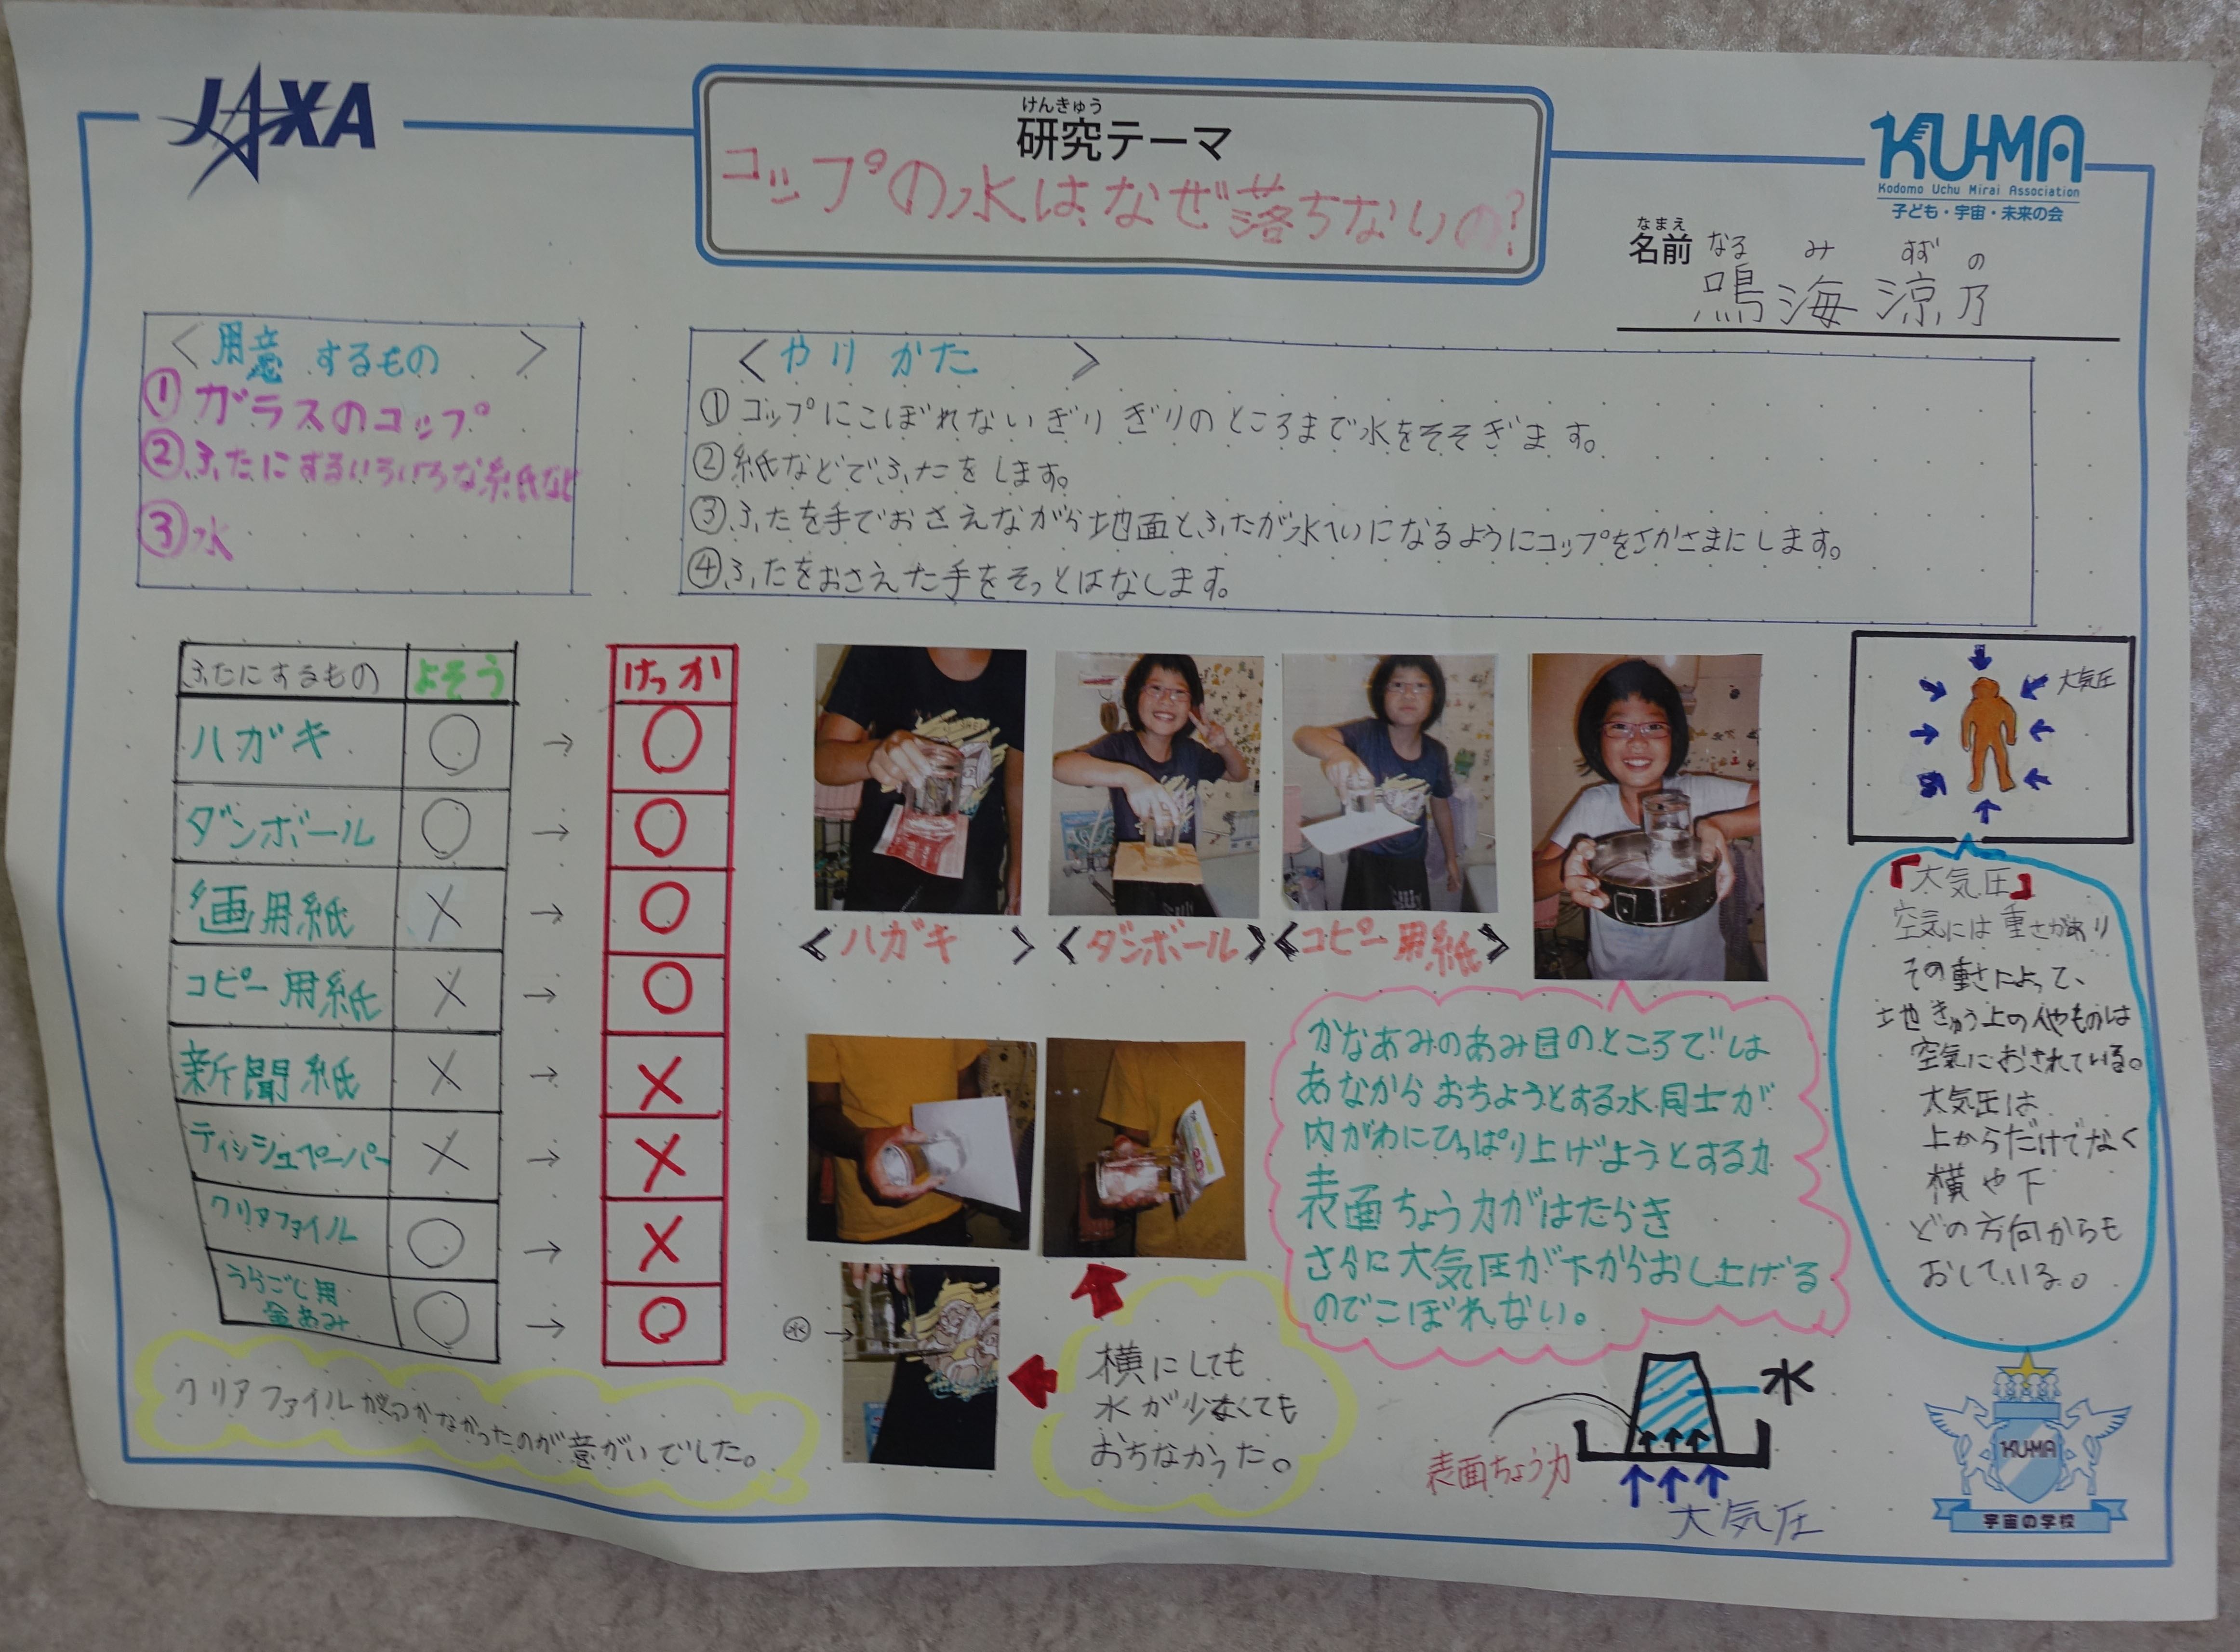 JAXA
けんきゅう
研究テーマ
コップの水はなぜ落ちないの?
KU-MA
Kodomo Uchu Mirai Association
子ども・宇宙・未来の会
なまえ
名前
なる み すず の
鳴海涼乃
<用意するもの>
①ガラスのコップ
②ふたにするいろいろな紙など
③水
<やりかた>
①コップにこぼれないぎりぎりのところまで水をそそぎます。
②紙などでふたをします。
③ふたを手でおさえながら地面とふたが水へいになるようにコップをさかさまにします。
④ふたをおさえた手をそっとはなします。
ふたにするもの よそう → けっか
ハガキ ○ → ○
ダンボール ○ → ○
画用紙 × → ○
コピー用紙 × → ○
新聞紙 × → ×
ティッシュペーパー × → ×
クリアファイル ○ → ×
うらごし用
金あみ ○ → ○
クリアファイルがつかなかったのが意がいでした。
<ハガキ>
<ダンボール>
<コピー用紙>
水→
横にしても
水が少なくても
おちなかった。
かなあみのあみ目のところでは
あなからおちようとする水同士が
内がわにひっぱり上げようとする力
表面ちょう力がはたらき
さらに大気圧が下からおし上げる
のでこぼれない。
大気圧
『大気圧』
空気には重さがあり
その重さによって、
地きゅう上の人やものは
空気におされている。
大気圧は
上からだけでなく
横や下
どの方向からも
おしている。
水
表面ちょう力
大気圧
KU-MA
宇宙の学校